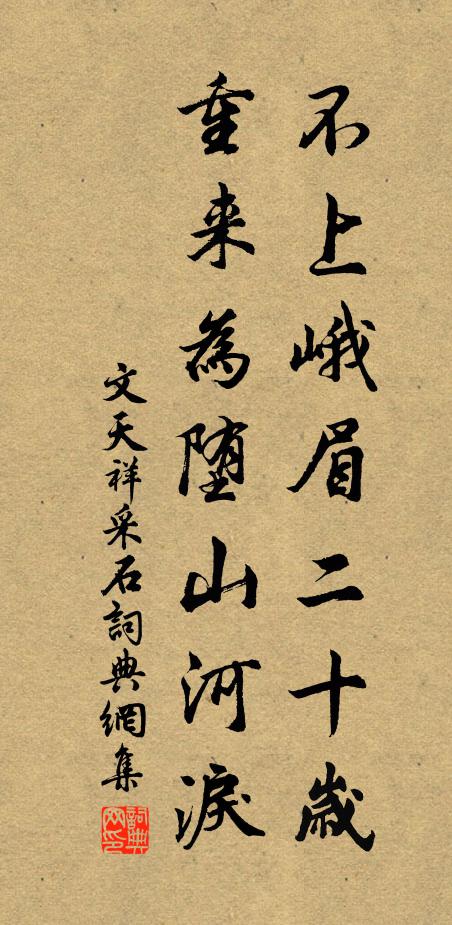 不上峨眉二十歲
重来為堕山河淚
文天祥采石詞典網集
詞典網印